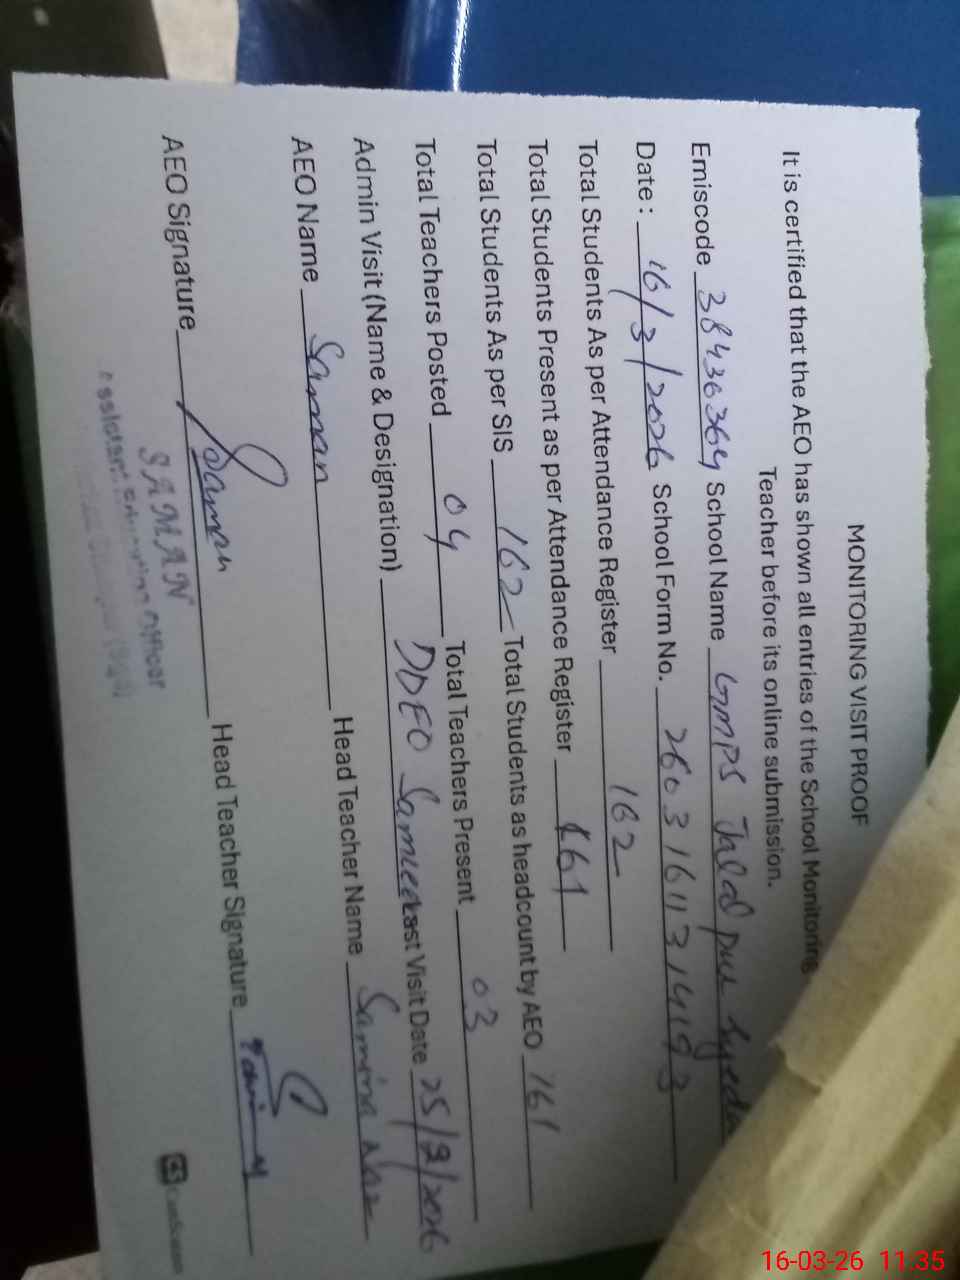 MONITORING VISIT PROOF
It is certified that the AEO has shown all entries of the School Monitoring
Teacher before its online submission.
Emiscode 38436364 School Name GMPS Jalal pur Syeda
Date: 16/3/2026 School Form No. 260316113141193
Total Students As per Attendance Register 162
Total Students Present as per Attendance Register 161
Total Students As per SIS 162 Total Students as headcount by AEO 161
Total Teachers Posted 04 Total Teachers Present 03
Admin Visit (Name & Designation) DDEO Sameera Last Visit Date 25/2/2026
AEO Name Saman Head Teacher Name Samina Naz
AEO Signature Saman Head Teacher Signature
SAMAN
Assistant Education Officer
CamScanner
16-03-26 11:35